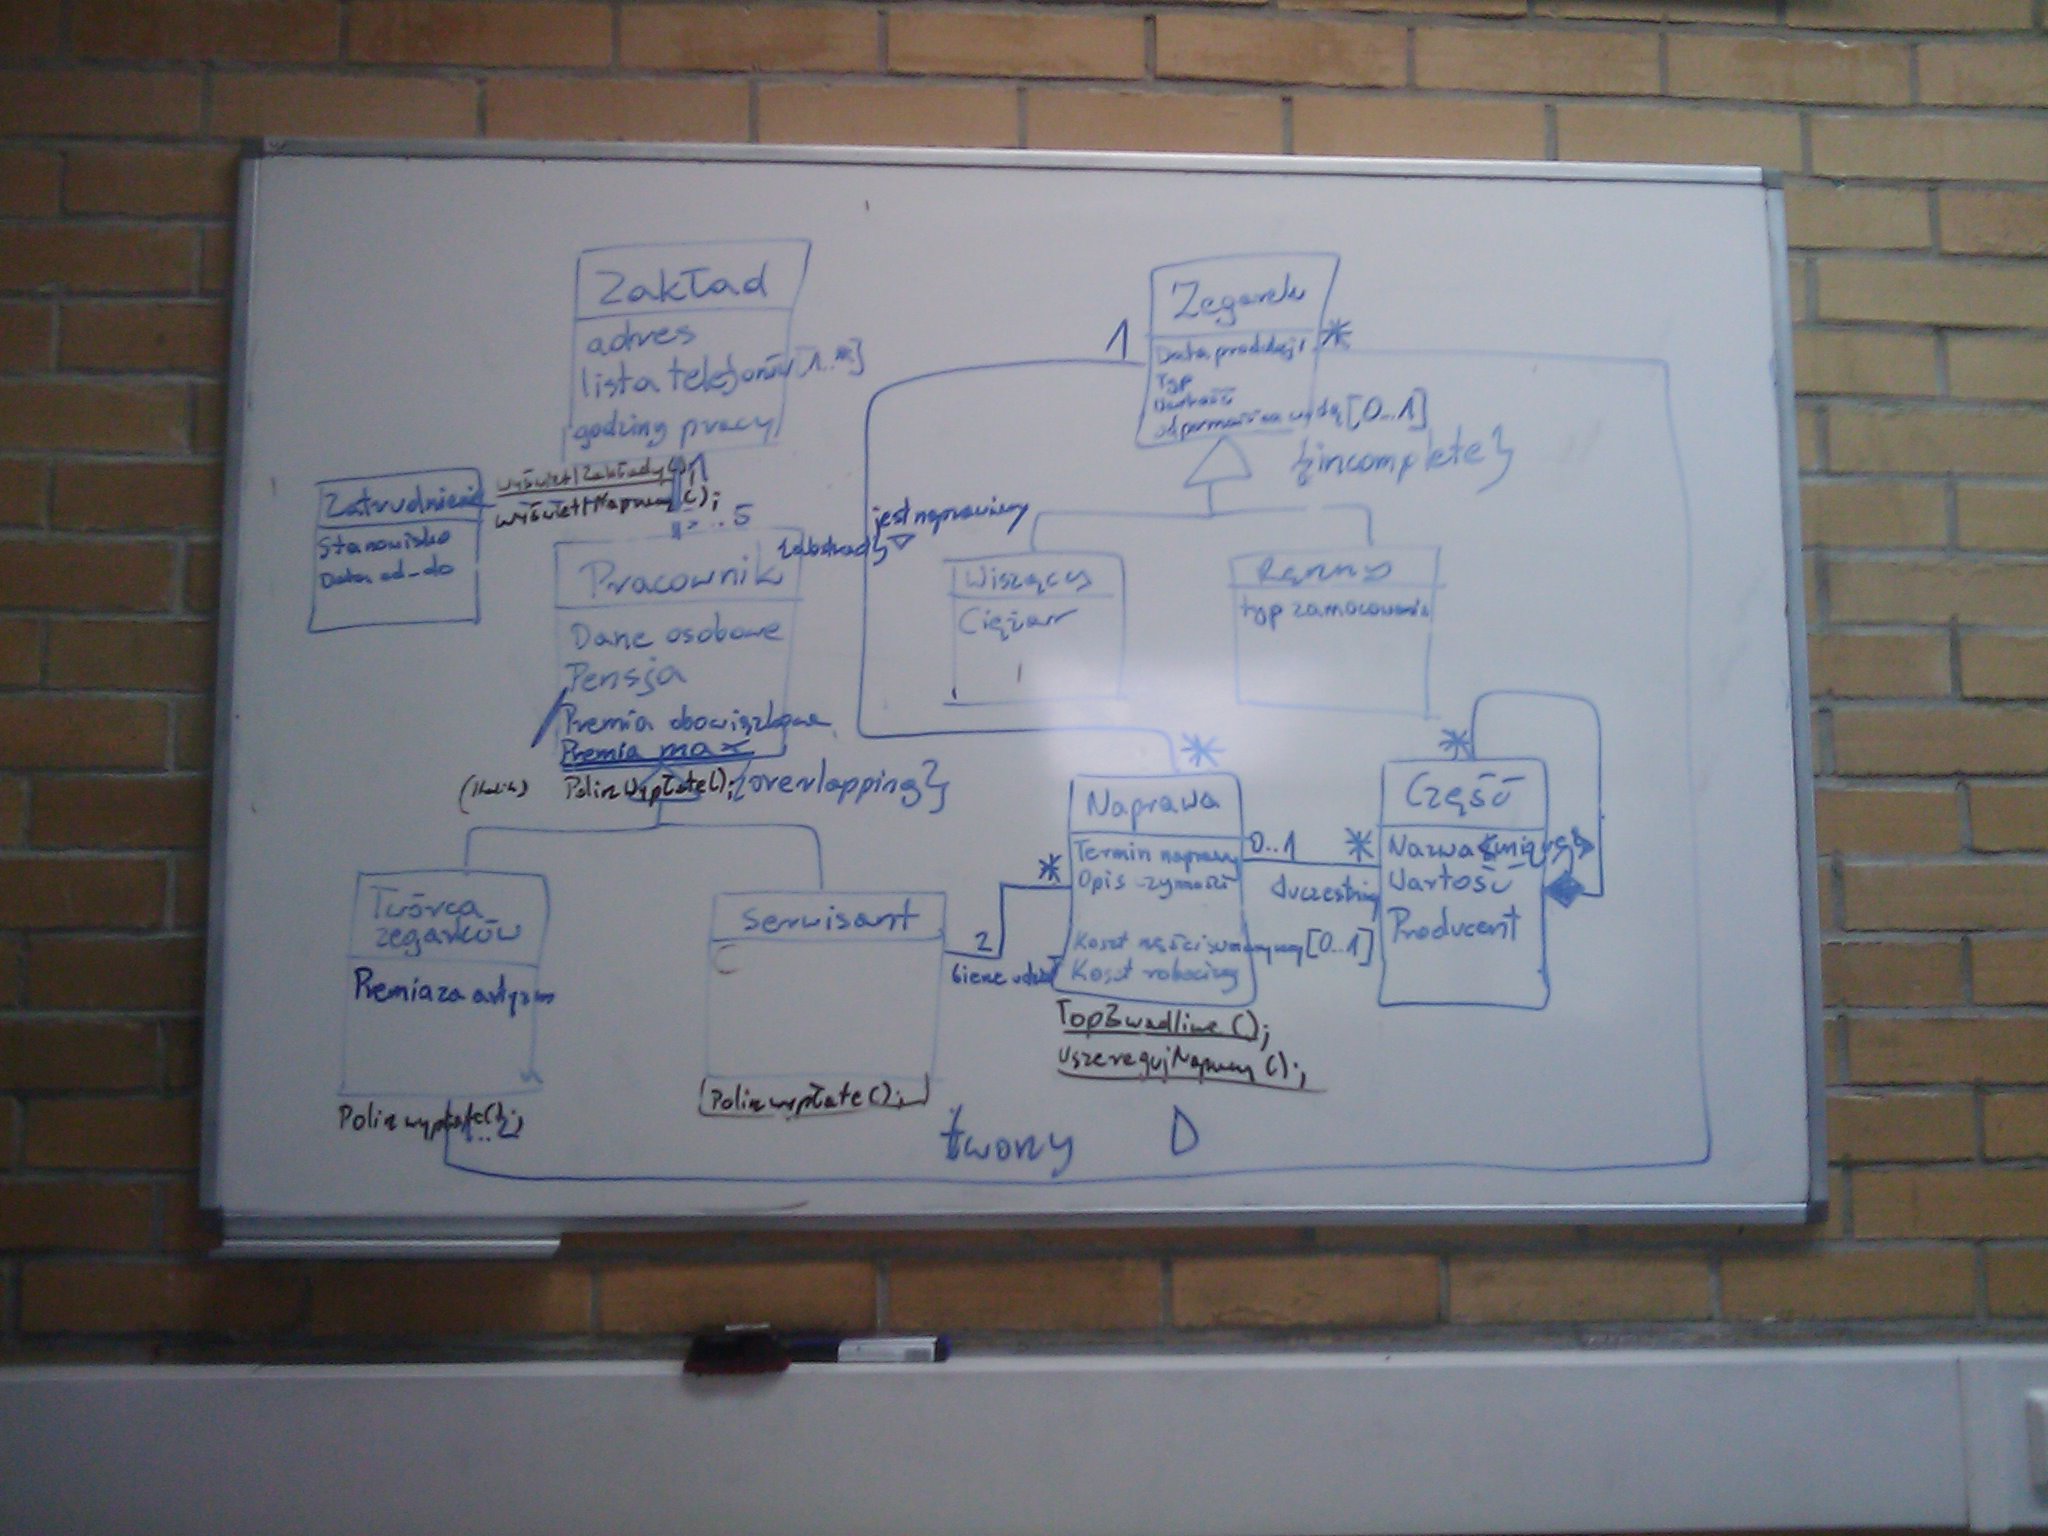 Zakład
adres
lista telefonów [1..*]
godziny pracy
wyświetlZakłady();
wyświetlNaprawy();
1
Zatrudnienie
Stanowisko
Data od-do
..5
Pracownik
{abstract}
Dane osobowe
Pensja
/Premia obowiązkowa
Premia max
PoliczWypłate();
{overlapping}
Twórca
zegarków
Premia za artyzm
Policzwypłate();
Serwisant
Policzwypłate();
Zegarek
1
*
Data produkcji
Typ
Wartość
odporność na wodę [0..1]
{incomplete}
jest naprawiany
Wiszący
Ciężar
Ręczny
typ zamocowania
*
Naprawa
Termin naprawy
Opis czynności
Koszt części sumaryczny [0..1]
Koszt robocizny
TOP3wadliwe();
UszeregujNaprawy();
*
2
bierze udział
0..1
*
uczestniczy
*
Część
Nazwa {unique}
Wartość
Producent
tworzy